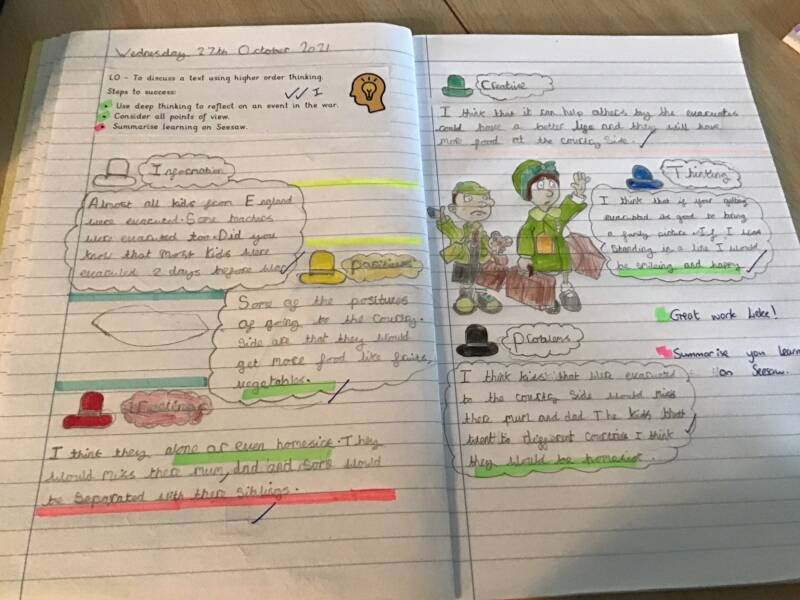 Wednesday 27th October 2021
LO - To discuss a text using higher order thinking.
Steps to success:
Use deep thinking to reflect on an event in the war.
Consider all points of view.
Summarise learning on Seesaw.
Information
Almost all kids from England
were evacuted. Some teachers
were evacuted too. Did you
know that most kids were
evacuted 2 days before war
Positives
Some of the positives
of going to the country
side are that they would
get more food like fruits,
vegetables.
Feelings
I think they alone or even homesick. They
would miss there mum, dad and some would
be separated with there siblings.
Creative
I think that it can help others by the evacuates
could have a better life and they will have
more food at the country side.
Thinking
I think that if your getting
evacuated its good to bring
a family picture. If I was
standing in a line I would
be smileing and happy
Great work Luke!
Summarise you learn
on Seesaw.
Problems
I think kids that were evacuated
to the country side would miss
there mum and dad The kids that
went to different countries I think
they would be homesick